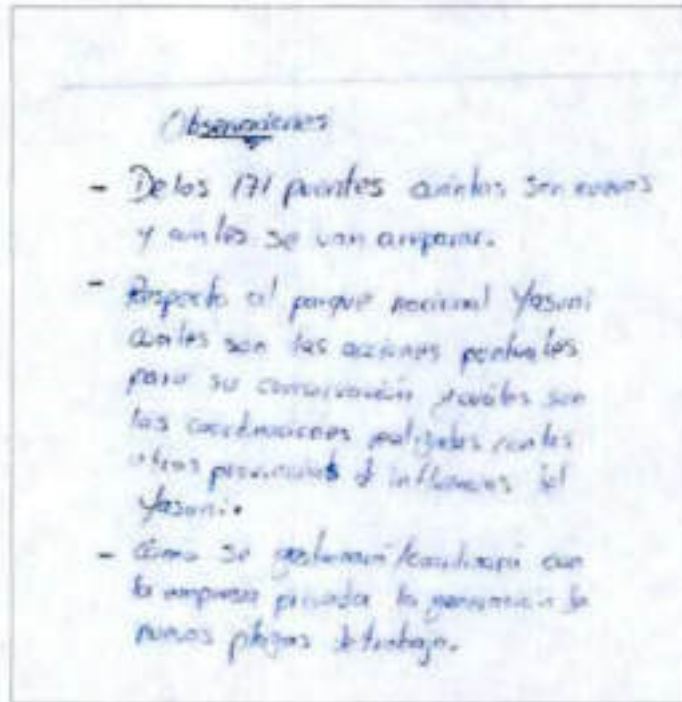 Observaciones
- De los 171 puentes cuántos son nuevos
y cuales se van a reparar.
- Respecto al parque nacional Yasuní
cuales son las acciones puntuales
para su conservación y cuáles son
las coordinaciones realizadas con las
otras provincias de influencias del
Yasuní.
- Cómo se gestionará/coordinará con
la empresa privada la generación de
nuevas plazas de trabajo.